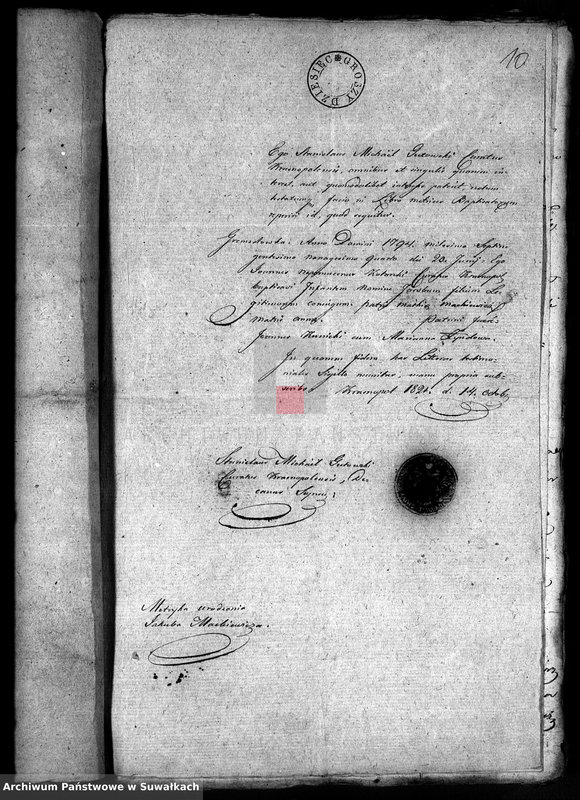 10
DZIESIĘC GROSZY
Ego Stanislaus Michaël Gutowski Curatus
Krasnopolensis, omnibus et singulis quorum in-
terest, aut quomodolibet interesse poterit notum
testatumq facio in Libro metrices Baptisatorum
reperiri id, quod sequitur.
Anno Domini 1794. milesimo Septin
gentesimo nonagesimo Quarto die 20. Junij. Ego
Joannes Nepomucenus Curatus Krasnopol
baptisavi Infantem Nomine Jacobum filium Le
gitimorum coniugum: patris Mackiewicz
matris Anna. Patrini fuere
Joannes cum Marianna
In quorum fidem has Literas testimo-
niales Sigillo munitas, manu propria sub-
scribo Krasnopol 1821. d. 14. Octobr.
Stanislaus Michaël Gutowski
Curatus Krasnopolensis, De-
canus
Metryka urodzenia
Jakuba Mackiewicza.
Archiwum Państwowe w Suwałkach